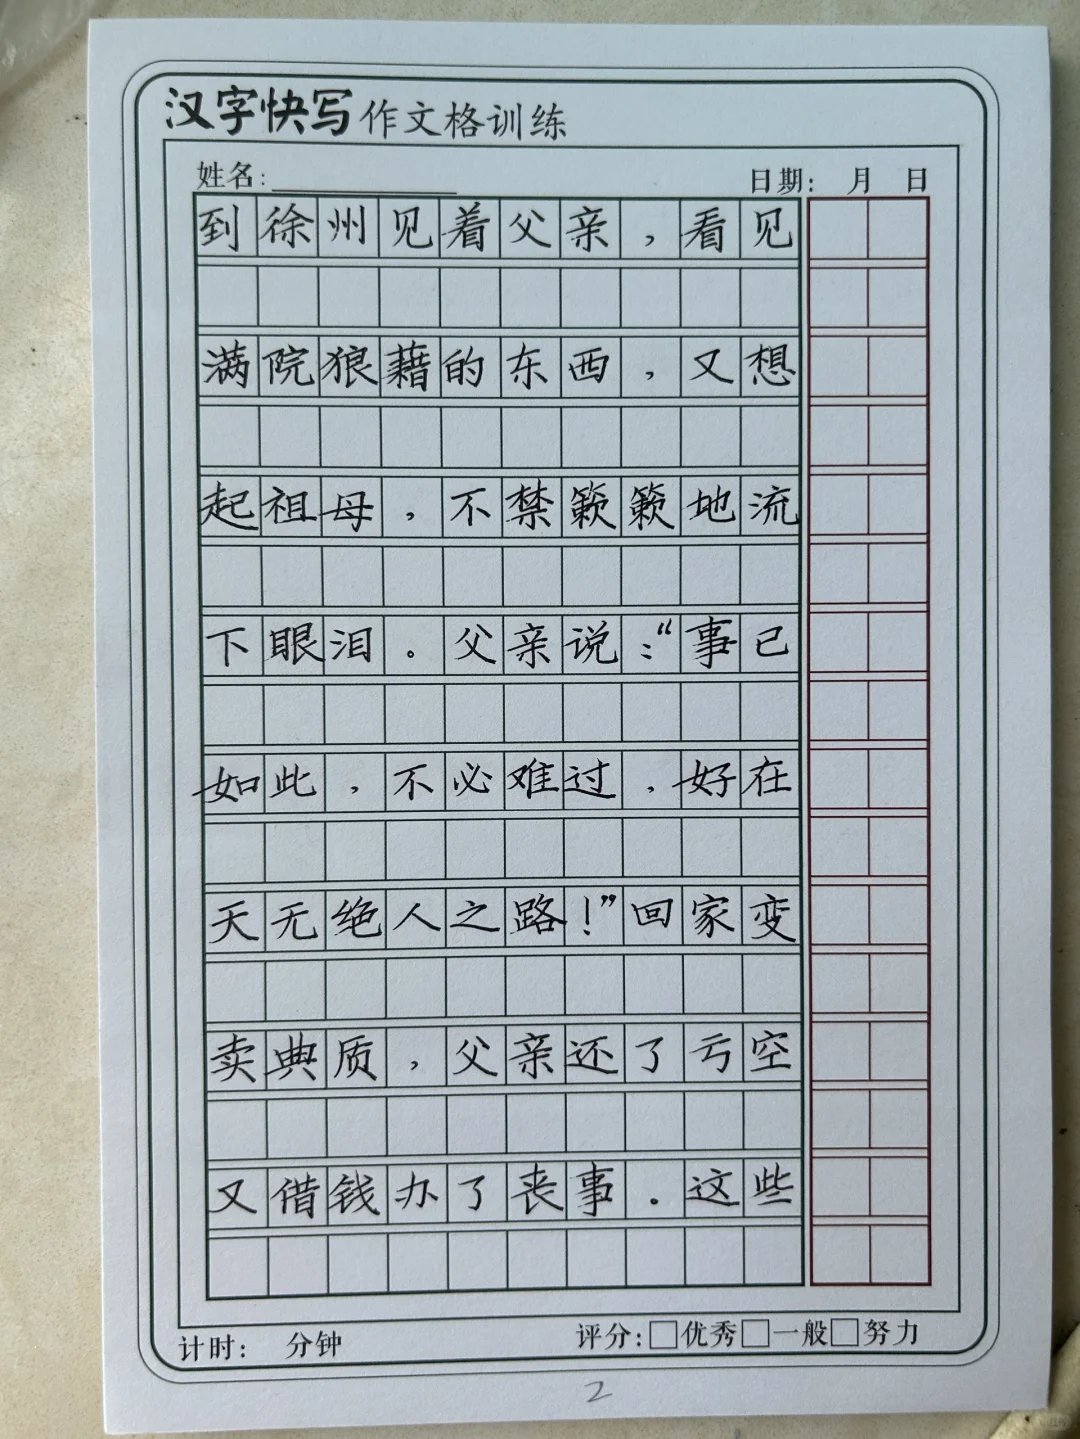 汉字快写作文格训练
姓名: 日期: 月 日
到徐州见着父亲，看见
满院狼藉的东西，又想
起祖母，不禁簌簌地流
下眼泪。父亲说：“事已
如此，不必难过，好在
天无绝人之路！”回家变
卖典质，父亲还了亏空
又借钱办了丧事。这些
计时: 分钟 评分:□优秀□一般□努力
2